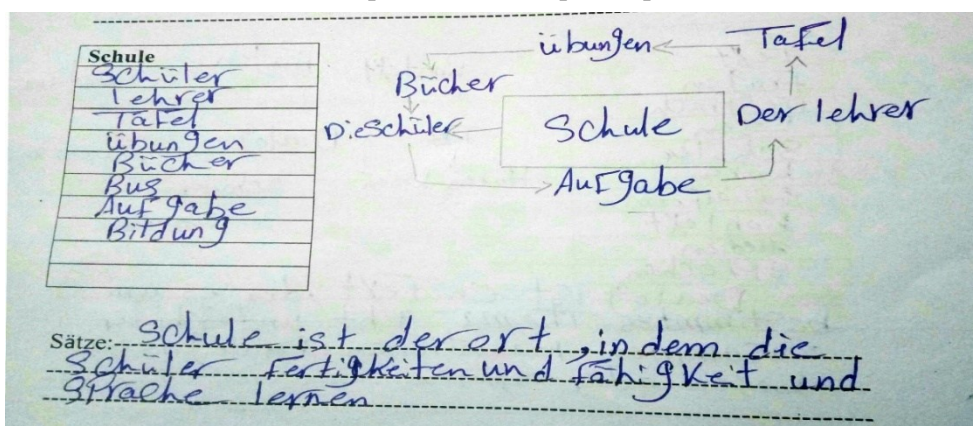 Schule
Schüler
lehrer
Tafel
übungen
Bücher
Bus
Aufgabe
Bitdung
übungen
Tafel
Bücher
Die Schüler
Schule
Der lehrer
Aufgabe
Sätze: Schule ist der ort, in dem die
Schüler Fertigkeiten und Fähigkeit und
Sprache lernen